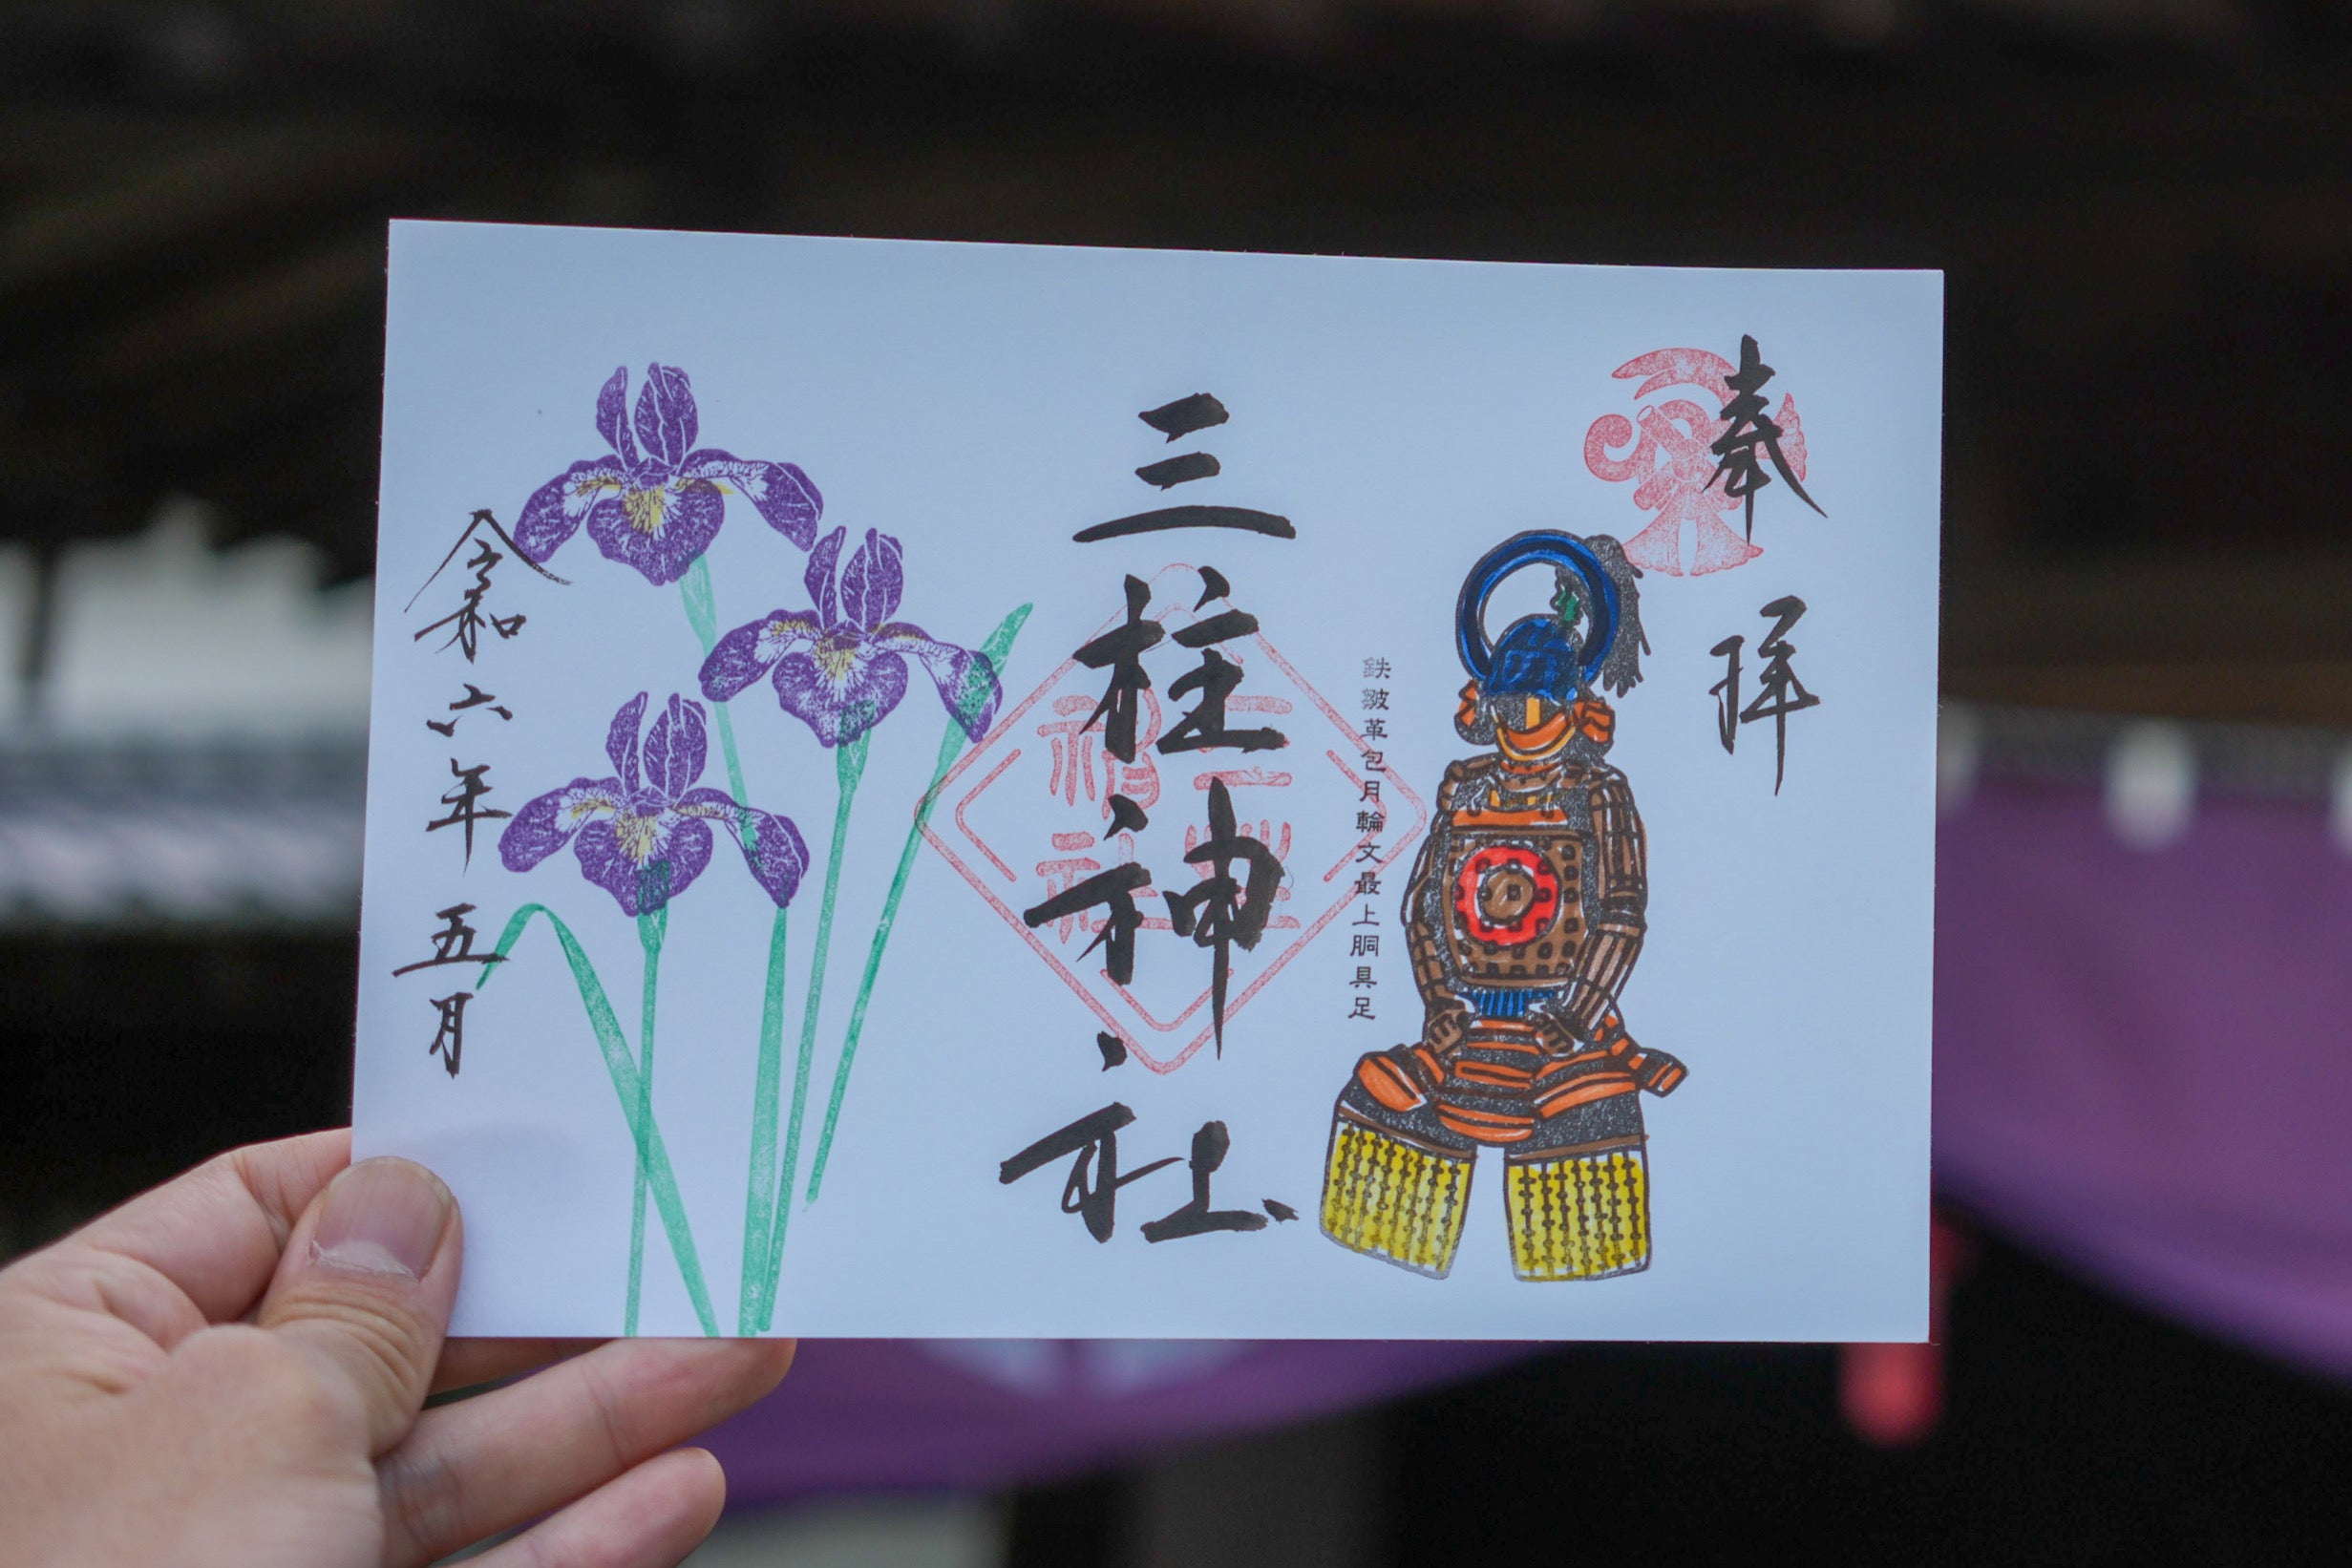 奉拝
鉄皺革包月輪文最上胴具足
三柱神社
三柱神社
令和六年五月